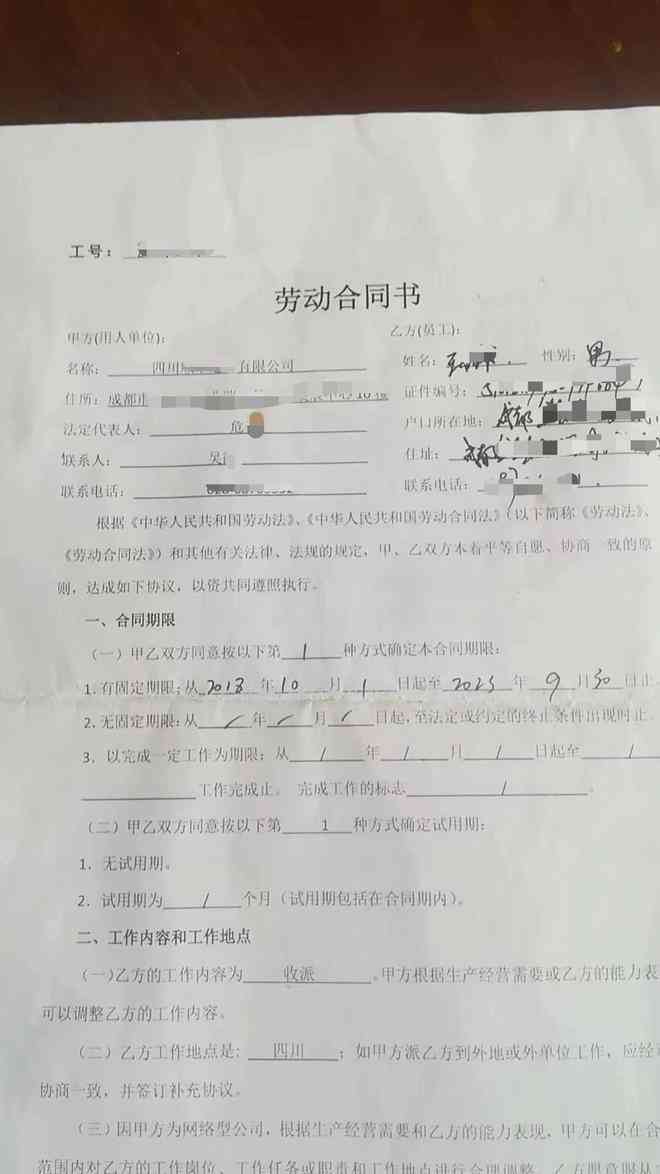 工号：
劳动合同书
甲方(用人单位)：
乙方(员工)：
名称： 四川 有限公司
姓名： 性别：男
住所：成都市
证件编号：
法定代表人：危
户口所在地：成都
联系人：吴
住址：成都
联系电话：
联系电话：
根据《中华人民共和国劳动法》、《中华人民共和国劳动合同法》（以下简称《劳动法》、
《劳动合同法》）和其他有关法律、法规的规定，甲、乙双方本着平等自愿、协商一致的原
则，达成如下协议，以资共同遵照执行。
一、合同期限
（一）甲乙双方同意按以下第 1 种方式确定本合同期限：
1.有固定期限：从 2018 年 10 月 1 日起至 2023 年 9 月 30 日止
2.无固定期限：从 / 年 / 月 / 日起，至法定或约定的终止条件出现时止。
3．以完成一定工作为期限：从 / 年 / 月 / 日起至 /
工作完成止。 完成工作的标志 / 。
（二）甲乙双方同意按以下第 1 种方式确定试用期：
1．无试用期。
2．试用期为 / 个月（试用期包括在合同期内）。
二、工作内容和工作地点
（一)乙方的工作内容为 收派 。甲方根据生产经营需要或乙方的能力表
可以调整乙方的工作内容。
（二）乙方工作地点是： 四川 ；如甲方派乙方到外地或外单位工作，应经
协商一致，并签订补充协议。
（三）因甲方为网络型公司，根据生产经营需要和乙方的能力表现，甲方可以在合
范围内对乙方的工作岗位、工作任务或职责和工作地点进行合理调整，乙方愿意服从